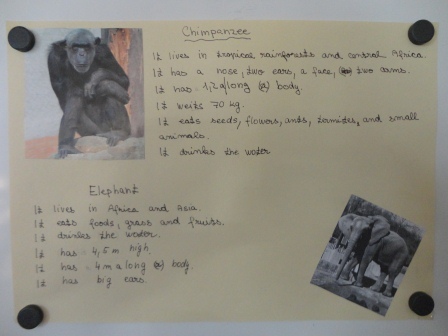 Chimpanzee
It lives in tropical rainforests and central Africa.
It has a nose, two ears, a face, two arms.
It has 1,2 a long body.
It weits 70 kg.
It eats seeds, flowers, ants, termites, and small
animals.
It drinkes the water
Elephant
It lives in Africa and Asia.
It eats foods, grass and fruits.
It drinkes the water.
It has 4,5 m high.
It has 4 m a long body
It has big ears.